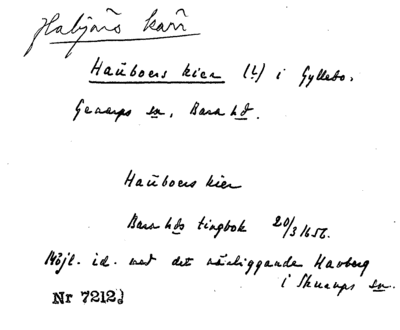 Habjörs kärr
Haűboers kier (L) i Gyllebo,
Genarps sn, Bara hd.
Haűboers kier
Bara hds tingbok 20/3 1656.
Möjl. id. med det närliggande Havberg
i Skurups sn.
Nr 7212.